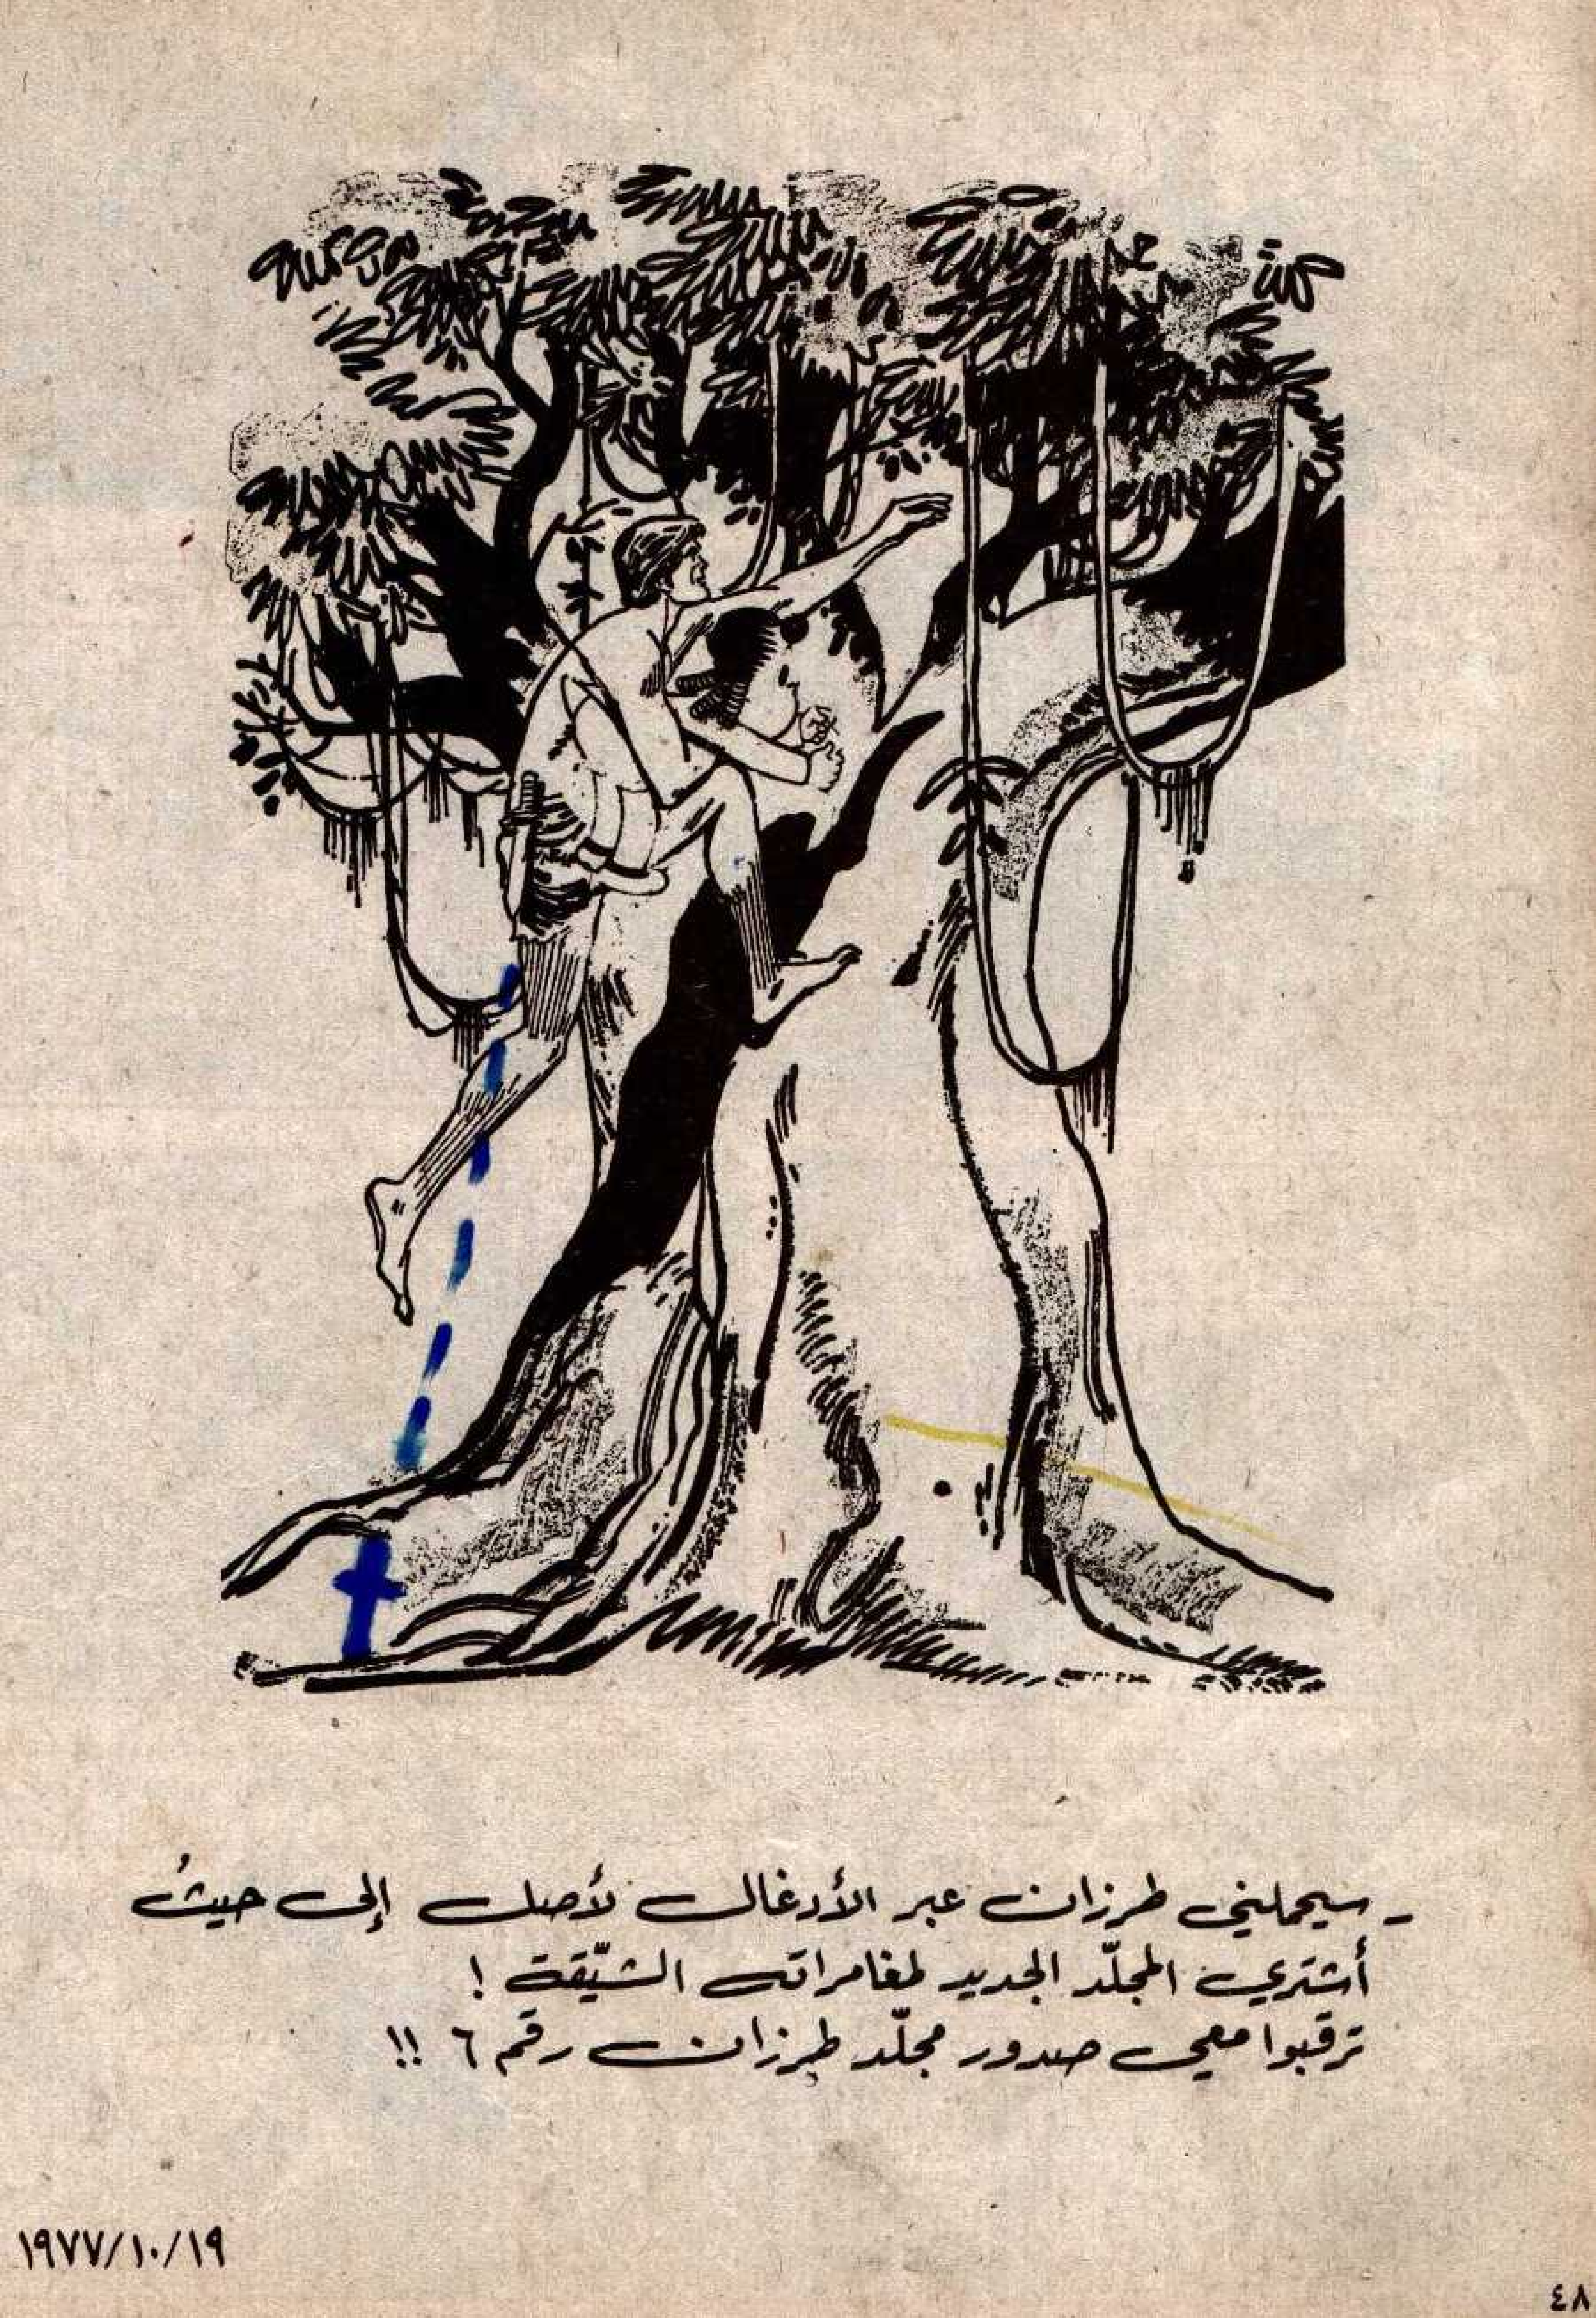 ـ سيحملني طرزان عبر الأدغال لأصل إلى حيثُ
أشتري المجلّد الجديد لمغامراته الشيّقة !
ترقبوا معي صدور مجلّد طرزان رقم ٦ !!
١٩٧٧/١٠/١٩
٤٨